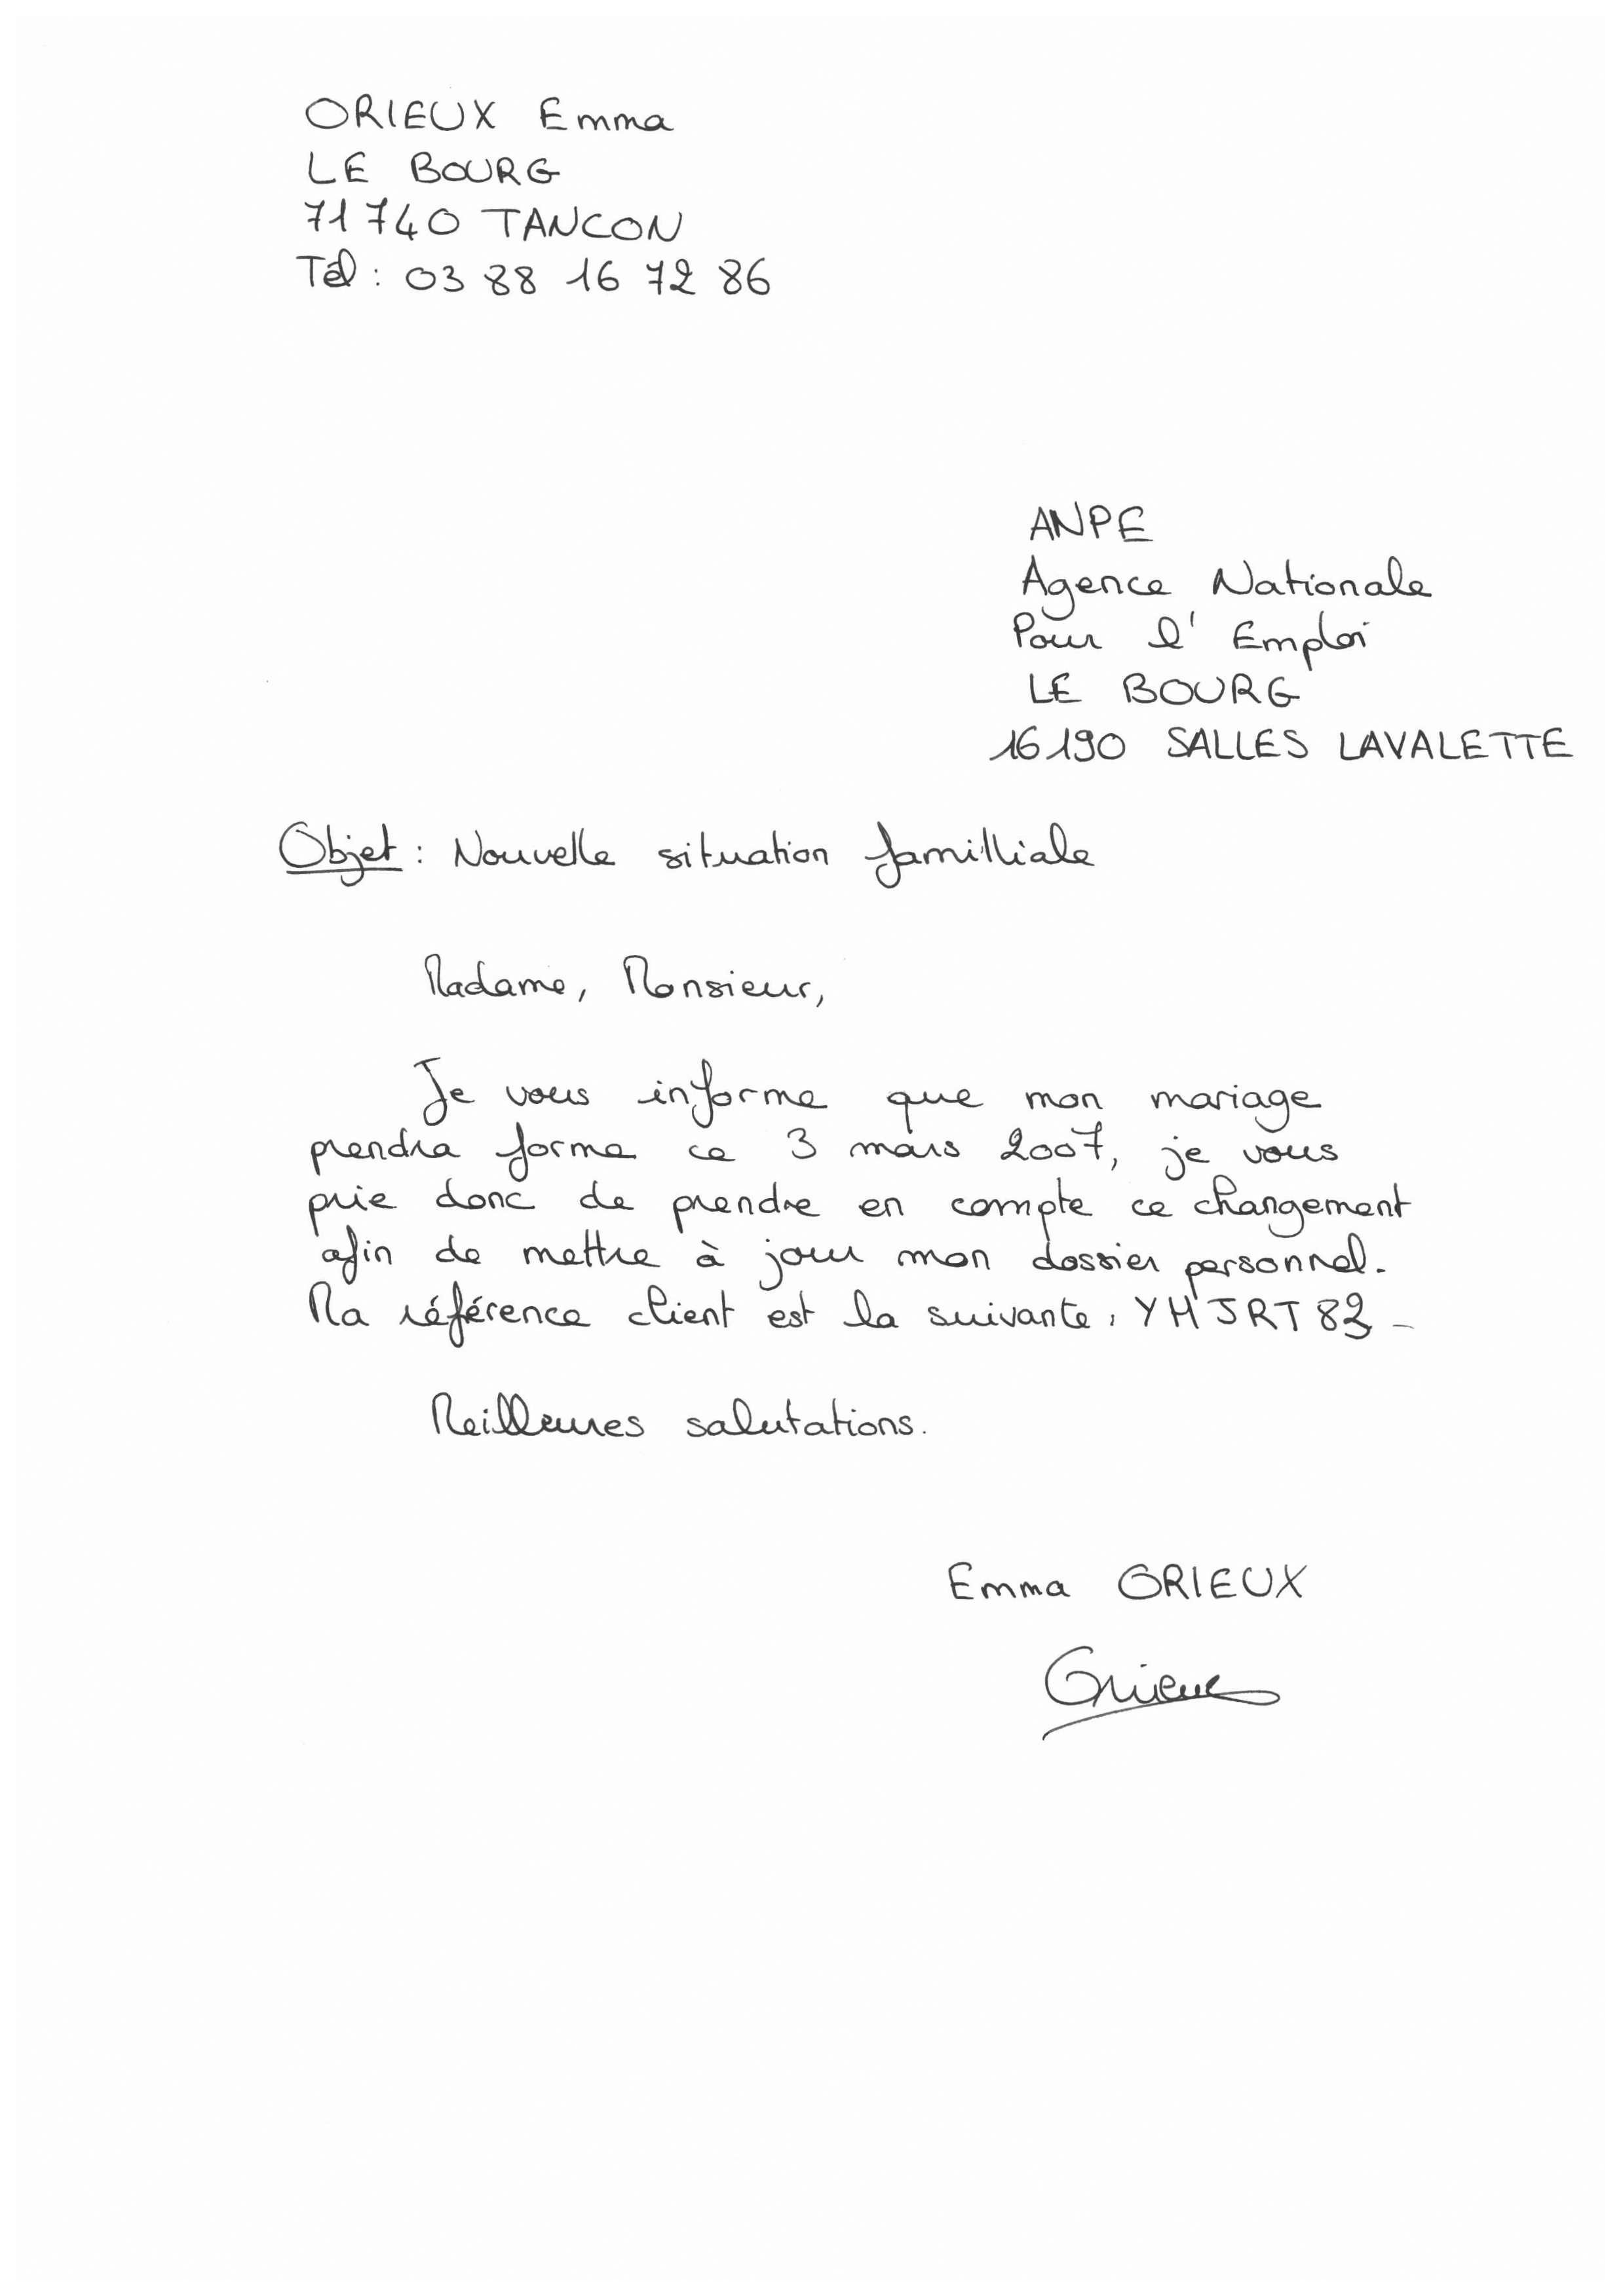 ORIEUX Emma
LE BOURG
71740 TANCON
Tél : 03 88 16 72 86
ANPE
Agence Nationale
Pour l'Emploi
LE BOURG
16190 SALLES LAVALETTE
Objet : Nouvelle situation familliale
Madame, Monsieur,
Je vous informe que mon mariage
prendra forme ce 3 mars 2007, je vous
prie donc de prendre en compte ce changement
afin de mettre à jour mon dossier personnel.
Ma référence client est la suivante : YHJRT82.
Meilleures salutations.
Emma ORIEUX
Orieux